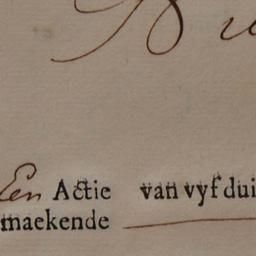 Een Actie van vyf dui
maekende